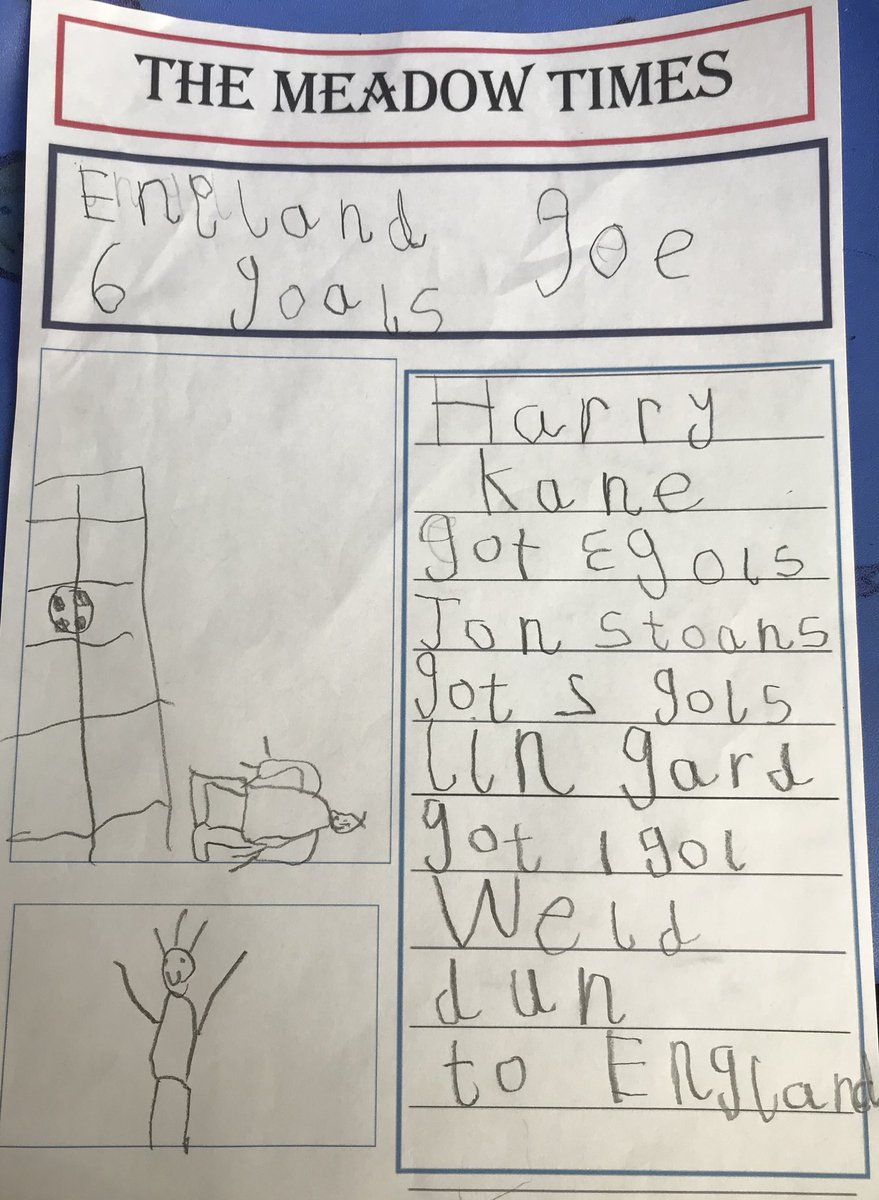 THE MEADOW TIMES
England
6 goals
goe
Harry
Kane
got 3 gols
Jon stoans
got 2 gols
lin gard
got 1 gol
Weld
dun
to England